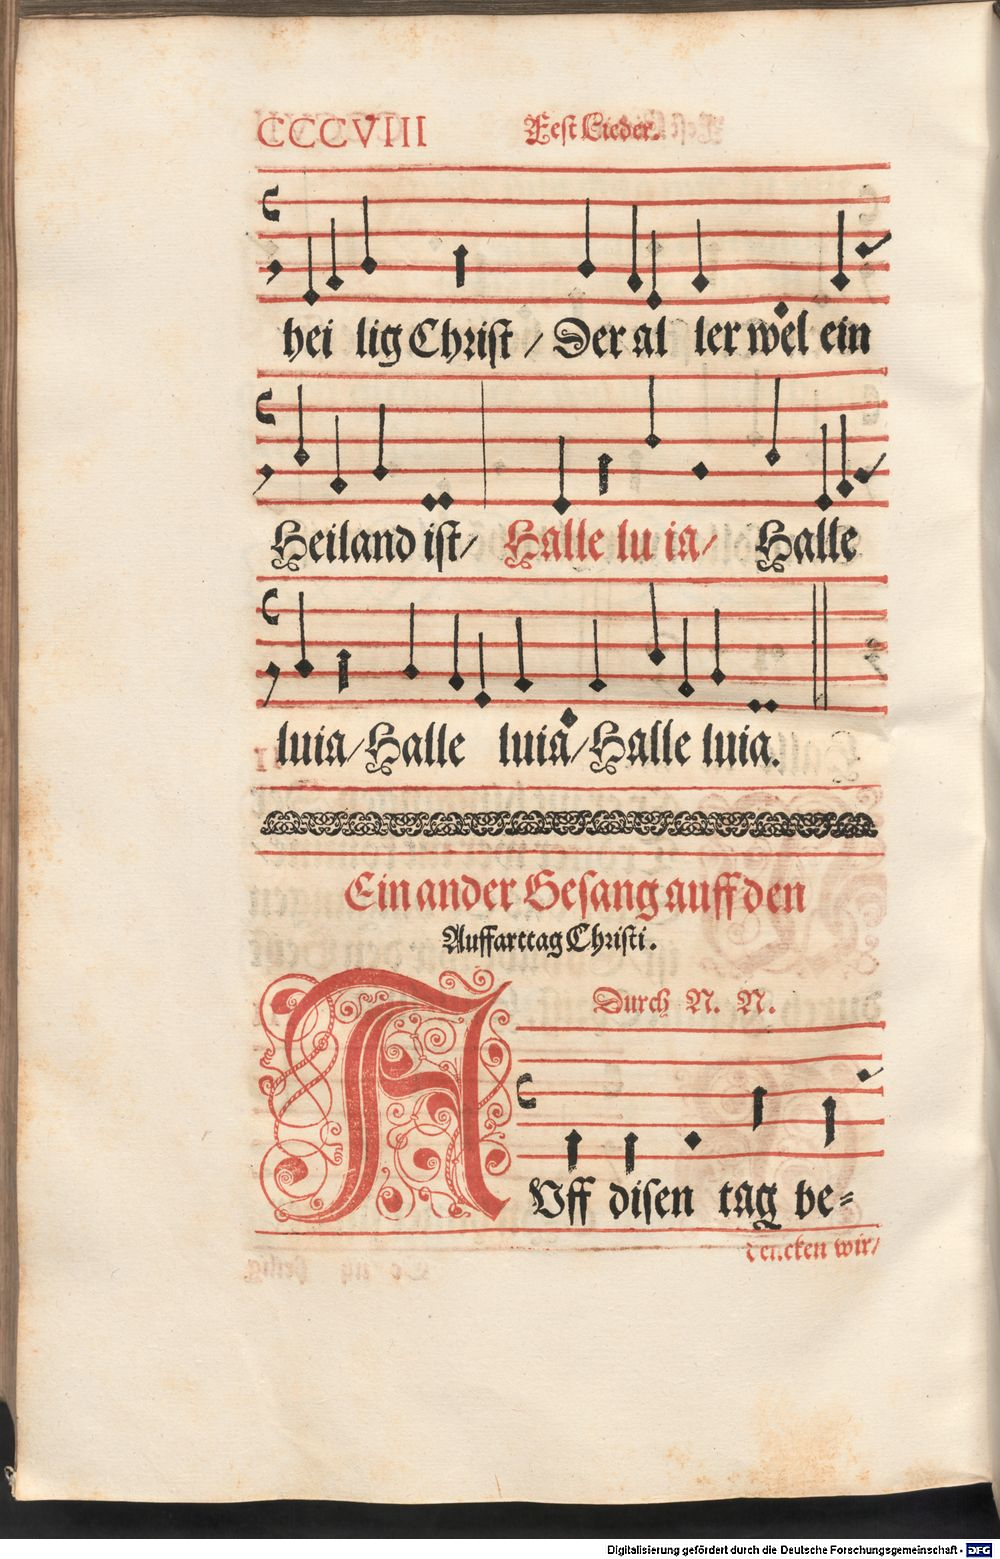 CCCVIII Fest Lieder.
hei lig Christ / Der al ler wel ein
Heiland ist / Halle lu ia / Halle
luia / Halle luia / Halle luia.
Ein ander Gesang auff den
Auffarttag Christi.
Durch N. N.
AUff disen tag be=
dencken wir /
Digitalisierung gefördert durch die Deutsche Forschungsgemeinschaft - DFG